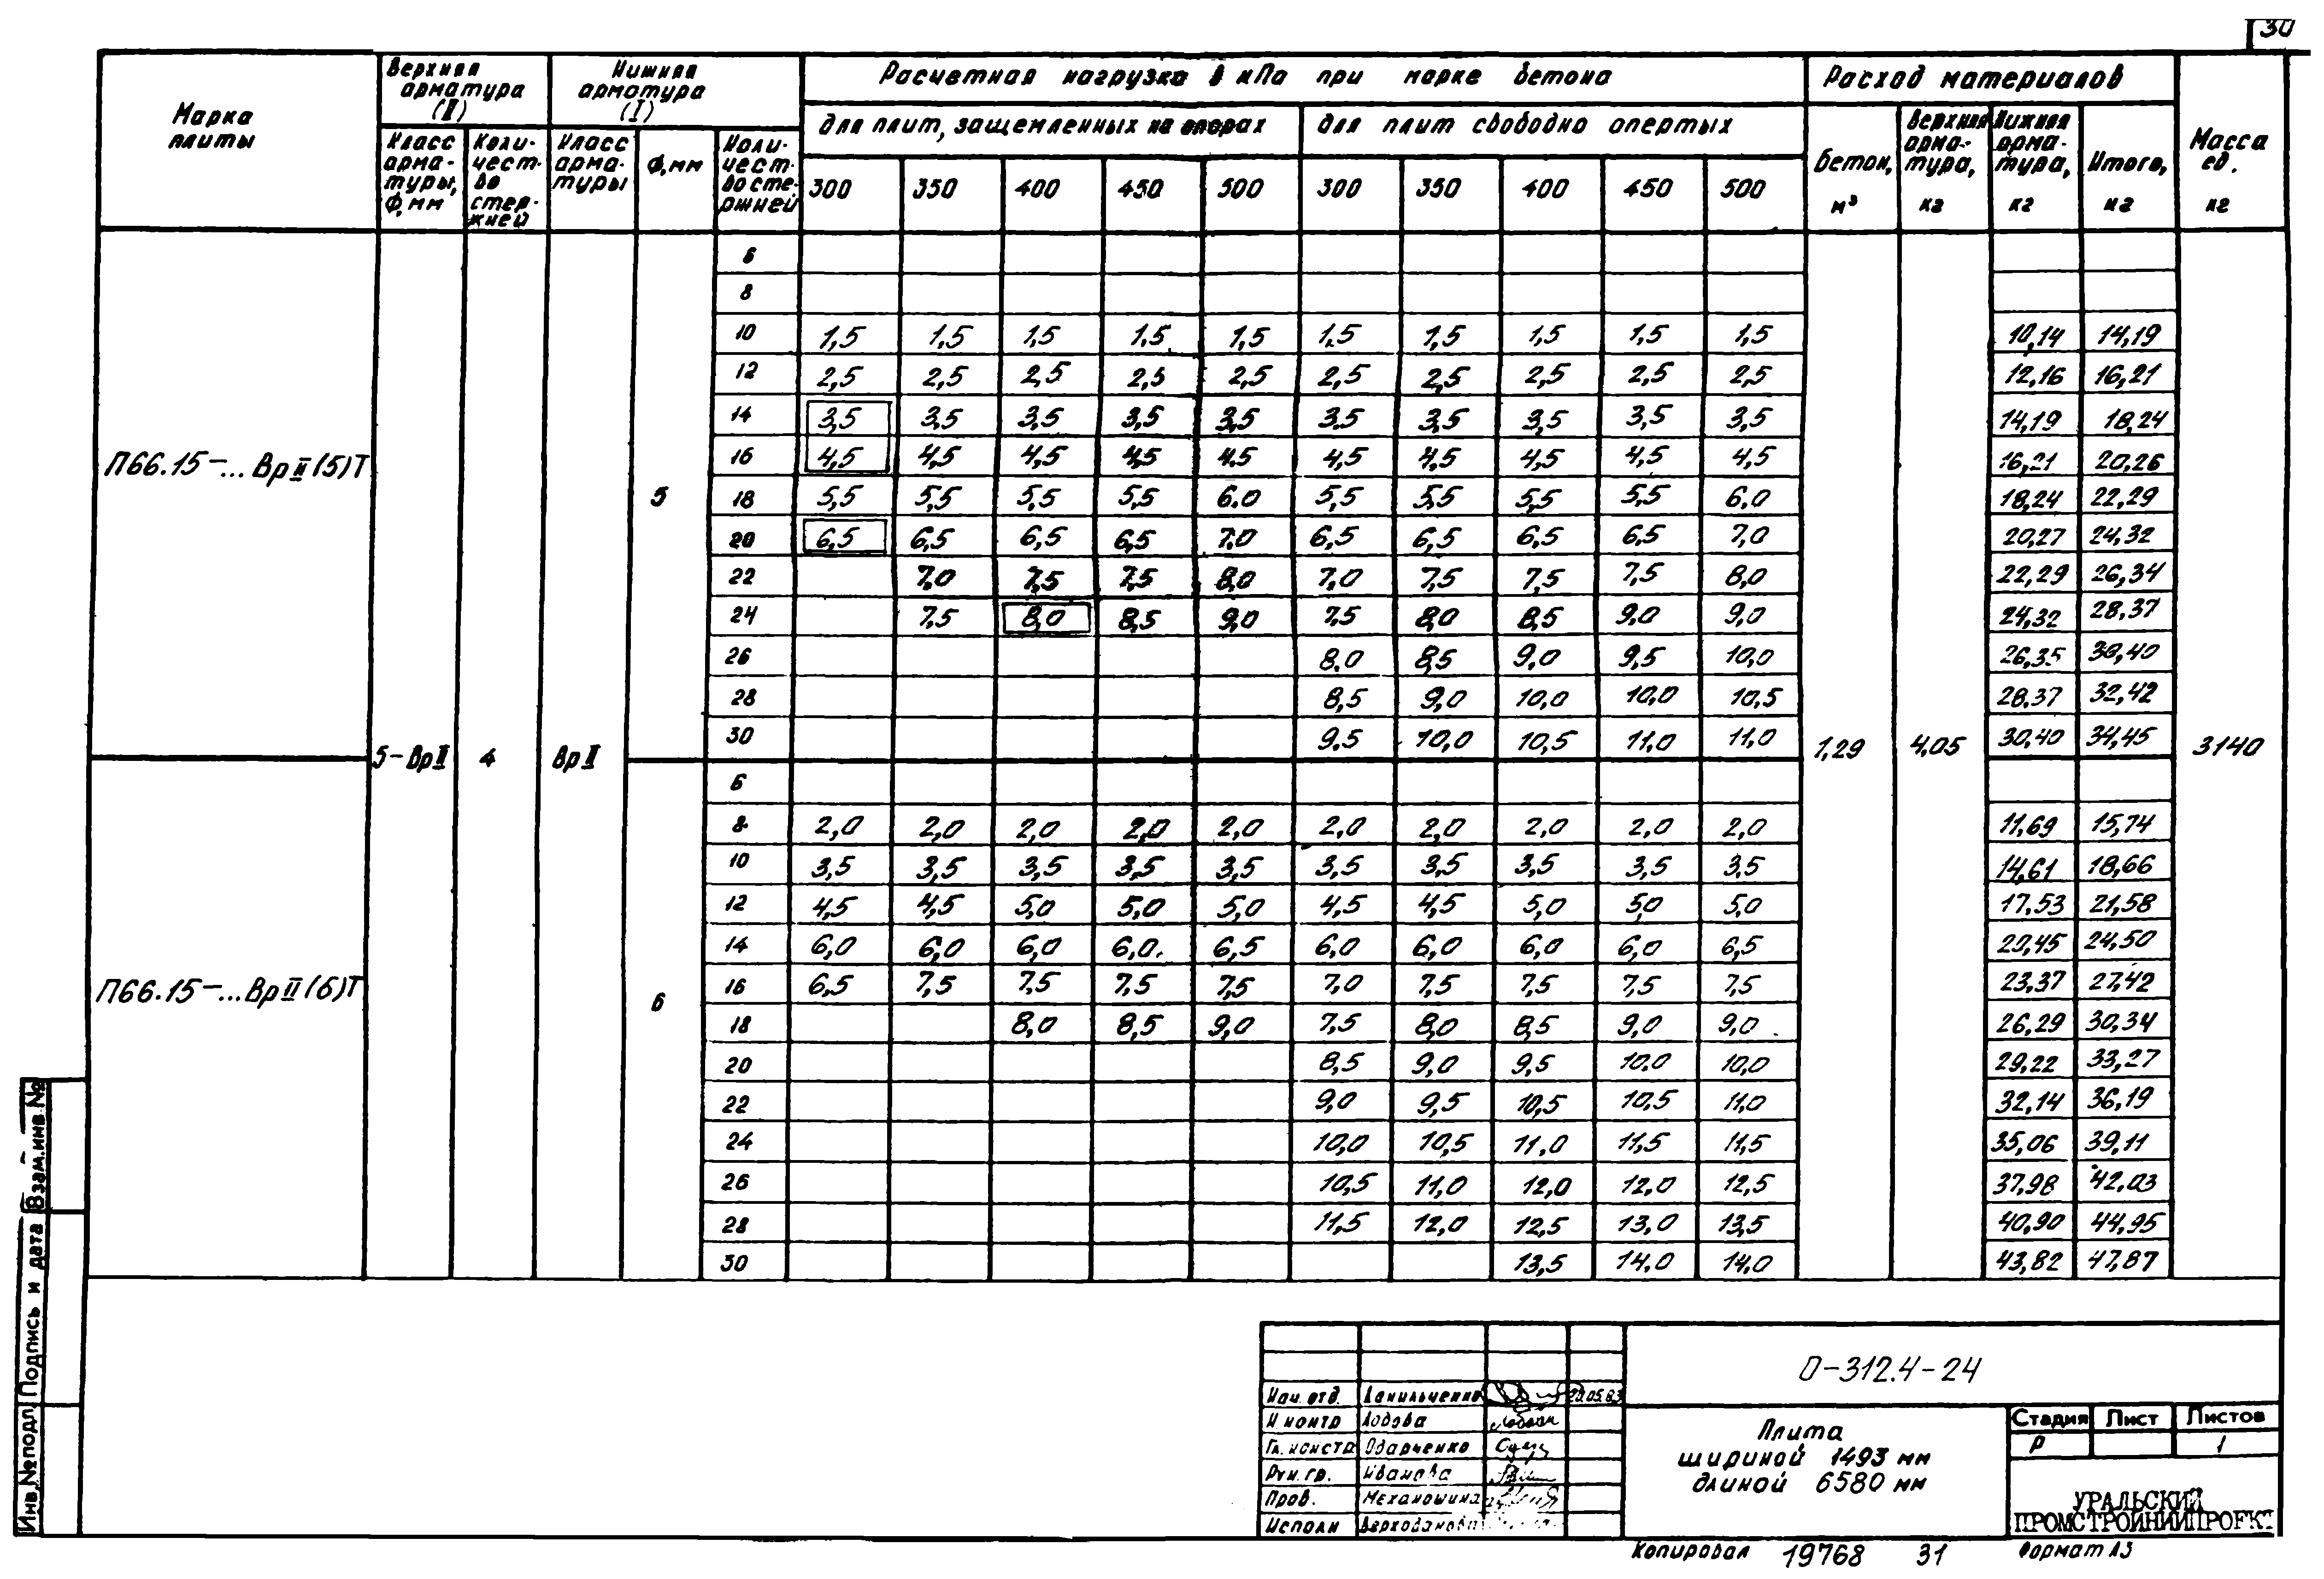 30
Марка плиты
Верхняя арматура (II)
Нижняя арматура (I)
Расчетная нагрузка в кПа при марке бетона
Расход материалов
Масса ед. кг
для плит, защемленных на опорах
для плит свободно опертых
Класс арматуры, Ф, мм
Количество стержней
Класс арматуры
Ф, мм
Количество стержней
300 350 400 450 500 300 350 400 450 500
Бетон, м³
Верхняя арматура, кг
Нижняя арматура, кг
Итого, кг
6
8
10 1,5 1,5 1,5 1,5 1,5 1,5 1,5 1,5 1,5 1,5 10,14 14,19
12 2,5 2,5 2,5 2,5 2,5 2,5 2,5 2,5 2,5 2,5 12,16 16,21
14 3,5 3,5 3,5 3,5 3,5 3,5 3,5 3,5 3,5 3,5 14,19 18,24
16 4,5 4,5 4,5 4,5 4,5 4,5 4,5 4,5 4,5 4,5 16,21 20,26
П66.15-... ВрII(5)Т
5
18 5,5 5,5 5,5 5,5 6.0 5,5 5,5 5,5 5,5 6,0 18,24 22,29
20 6,5 6,5 6,5 6,5 7,0 6,5 6,5 6,5 6,5 7,0 20,27 24,32
22 7,0 7,5 7,5 8,0 7,0 7,5 7,5 7,5 8,0 22,29 26,34
24 7,5 8,0 8,5 9,0 7,5 8,0 8,5 9,0 9,0 24,32 28,37
26 8,0 8,5 9,0 9,5 10,0 26,35 30,40
28 8,5 9,0 10,0 10,0 10,5 28,37 32,42
30 9,5 10,0 10,5 11,0 11,0 30,40 34,45
5-ВрII 4 ВрII 1,29 4,05 3140
6
8 2,0 2,0 2,0 2,0 2,0 2,0 2,0 2,0 2,0 2,0 11,69 15,74
10 3,5 3,5 3,5 3,5 3,5 3,5 3,5 3,5 3,5 3,5 14,61 18,66
12 4,5 4,5 5,0 5,0 5,0 4,5 4,5 5,0 5,0 5,0 17,53 21,58
14 6,0 6,0 6,0 6,0. 6,5 6,0 6,0 6,0 6,0 6,5 20,45 24,50
16 6,5 7,5 7,5 7,5 7,5 7,0 7,5 7,5 7,5 7,5 23,37 27,42
П66.15-... ВрII(6)Т
6
18 8,0 8,5 9,0 7,5 8,0 8,5 9,0 9,0 26,29 30,34
20 8,5 9,0 9,5 10,0 10,0 29,22 33,27
22 9,0 9,5 10,5 10,5 11,0 32,14 36,19
24 10,0 10,5 11,0 11,5 11,5 35,06 39,11
26 10,5 11,0 12,0 12,0 12,5 37,98 42,03
28 11,5 12,0 12,5 13,0 13,5 40,90 44,95
30 13,5 14,0 14,0 43,82 47,87
Взам.инв.№
Подпись и дата
Инв.№подл.
Нач. отд. Данильченко 20.05.83
Н. контр Лодова
Гл. констр Одарченко
Рук. гр. Иванова
Пров. Механошина
Исполн
О-312.4-24
Плита
шириной 1493 мм
длиной 6580 мм
Стадия Лист Листов
Р 1
УРАЛЬСКИЙ
ПРОМСТРОЙНИИПРОЕКТ
Копировал 19768 31 Формат А3